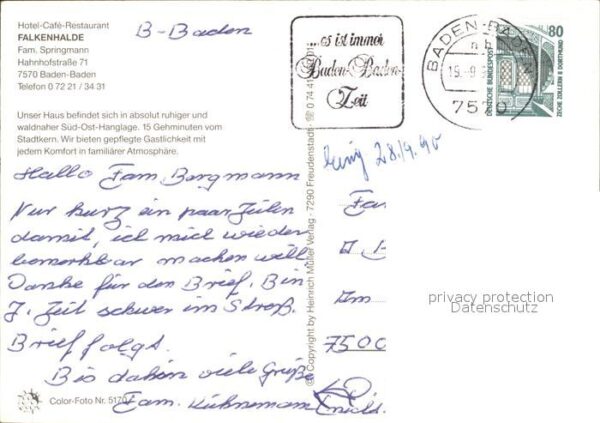 Hotel-Café-Restaurant
FALKENHALDE
Fam. Springmann
Hahnhofstraße 71
7570 Baden-Baden
Telefon 0 72 21 / 34 31
B-Baden
Unser Haus befindet sich in absolut ruhiger und
waldnaher Süd-Ost-Hanglage. 15 Gehminuten vom
Stadtkern. Wir bieten gepflegte Gastlichkeit mit
jedem Komfort in familiärer Atmosphäre.
Hallo Fam. Bergmann
Nur kurz ein paar Zeilen
damit, ich mich wieder
bemerkbar machen will.
Danke für den Brief. Bin
z. Zeit schwer im Streß.
Brief folgt.
Bis dahin viele Grüße
Fam.
Color-Foto Nr. 5170
© Copyright by Heinrich Müller Verlag · 7290 Freudenstadt · ☏ 0 74 41
...es ist immer
Baden-Baden-
Zeit
BADEN-BADEN
19.-9.
7570
80
DEUTSCHE BUNDESPOST
ZECHE ZOLLERN II DORTMUND
28/9.90
Fa
Am
7500
privacy protection
Datenschutz